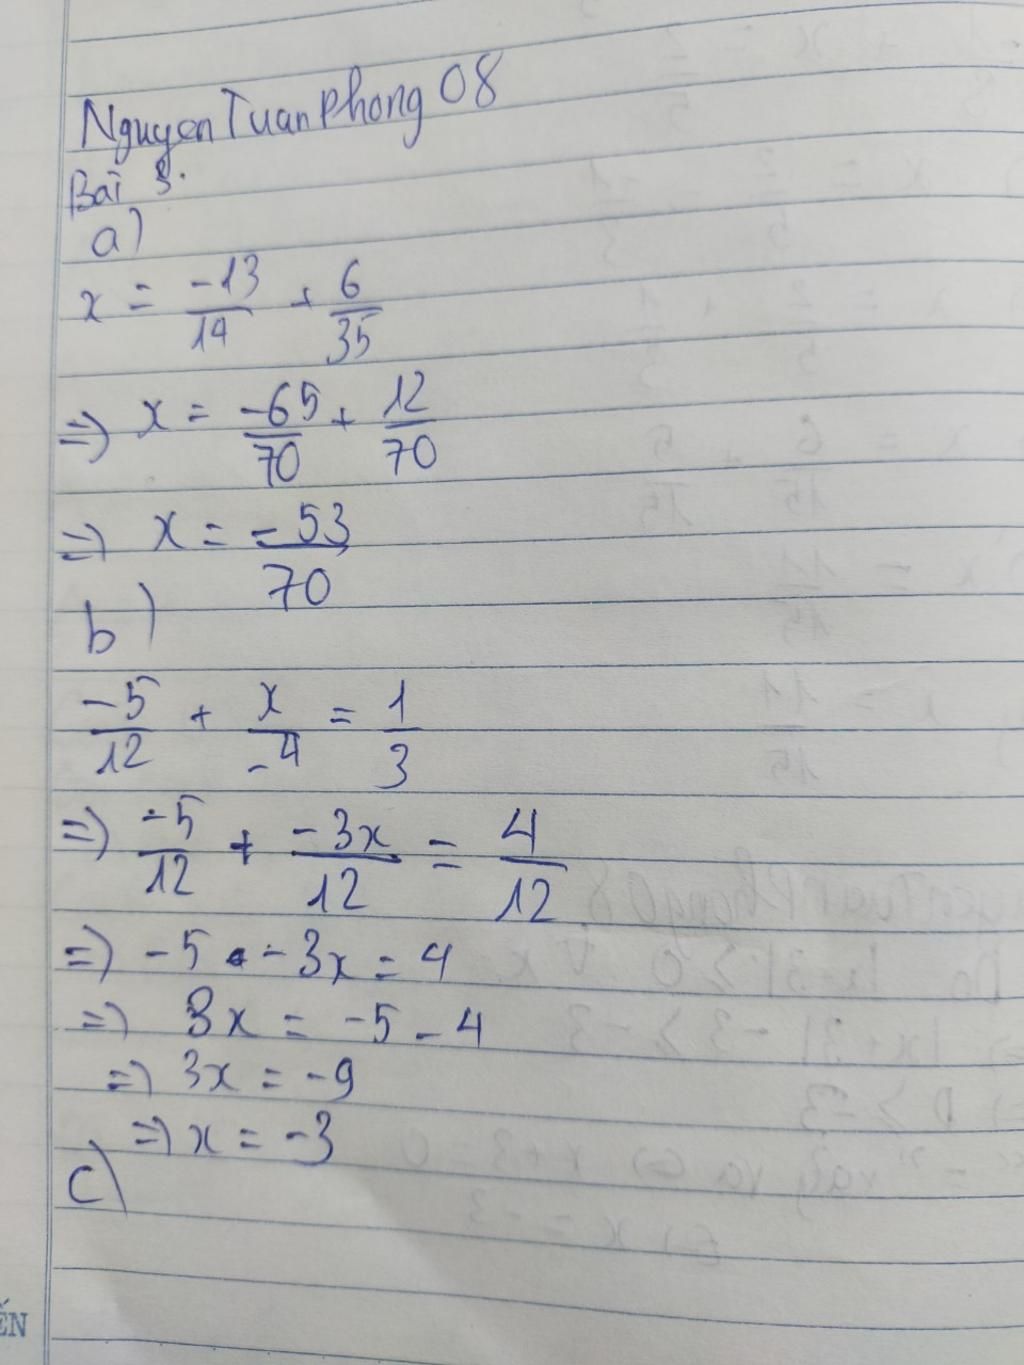 Nguyen Tuan Phong 08
Bài 3.
a)
x = -13/14 + 6/35
=> x = -65/70 + 12/70
=> x = -53/70
b)
-5/12 + x/-4 = 1/3
=> -5/12 + -3x/12 = 4/12
=> -5 - 3x = 4
=> 3x = -5 - 4
=> 3x = -9
=> x = -3
c)
ẾN